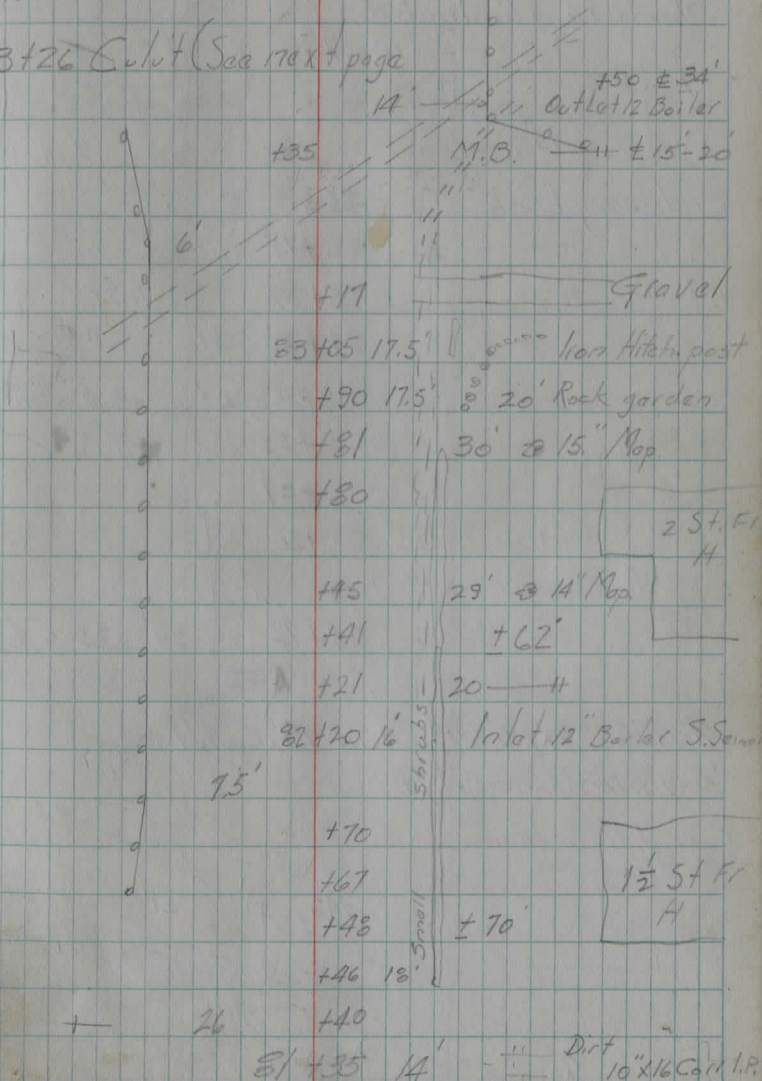 3+26 Culvt (See next page
+50 ± 34'
14' Outlet 12 Boiler
+35 M.B. —〃 ± 15'-20'
6'
+17 Gravel
83+05 17.5' Iron Hitch. post
+90 17.5' 20' Rock garden
+81 30' 15" Map.
+80
2 St. Fr
H
+45 29' 14" Map
+41 ±62'
+21 20 —〃
82+20 16' Inlet 12" Boiler S.
7.5'
+70
+67 1½ St Fr
H
+48 ±70'
+46 18' Small Shrubs
26 +40
81+35 14' Dirt
10"x16 Corr I.P.